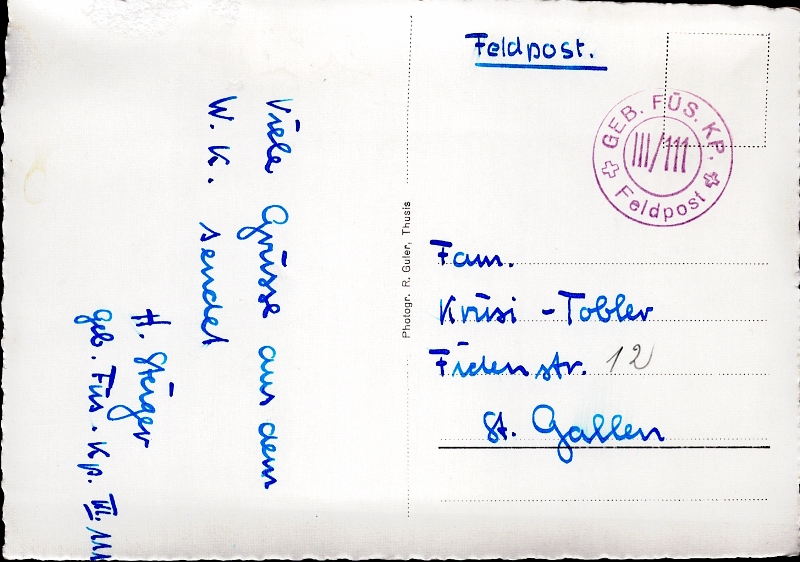 Viele Grüsse aus dem
W. K. sendet
H. Steiger
Geb. Füs. Kp. III. 111
Photogr. R. Guler, Thusis
Feldpost.
GEB. FÜS. KP.
III/111
Feldpost
Fam.
Krüsi - Tobler
Fidenstr. 12
St. Gallen